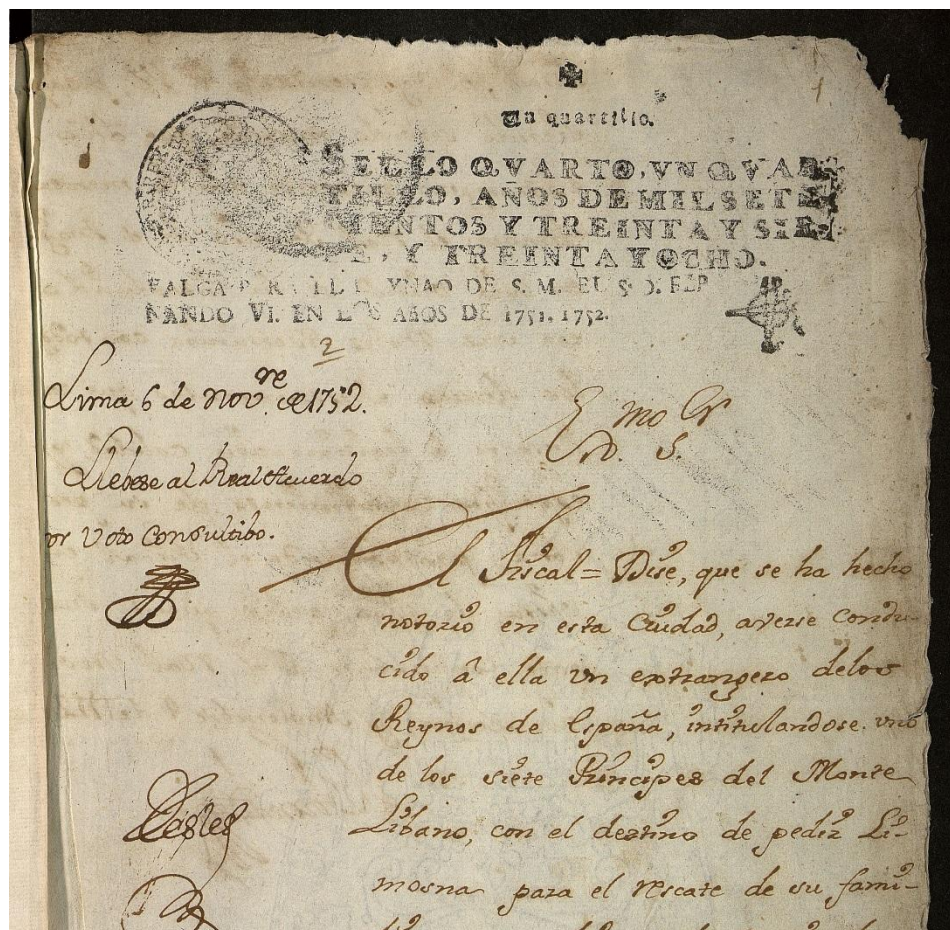 Un quartillo.
SELLO QVARTO, VN QVAR
TILLO, AÑOS DE MIL SETE
CIENTOS Y TREINTA Y SIE
TE, Y TREINTA Y OCHO.
VALGA PARA EL REYNADO DE S. M. EL S. D. FER
NANDO VI. EN LOS AÑOS DE 1751. 1752.
2
Lima 6 de Nov.re de 1752.
Llebese al Real Acuerdo
por Voto Consultibo.
Exmo Sr
El Fiscal = Dise, que se ha hecho
notorio en esta Ciudad, averse condu-
cido â ella un extrangero delos
Reynos de España, intitulandose uno
de los siete Principes del Monte
Libano, con el destino de pedir Li-
mosna para el rescate de su fami-